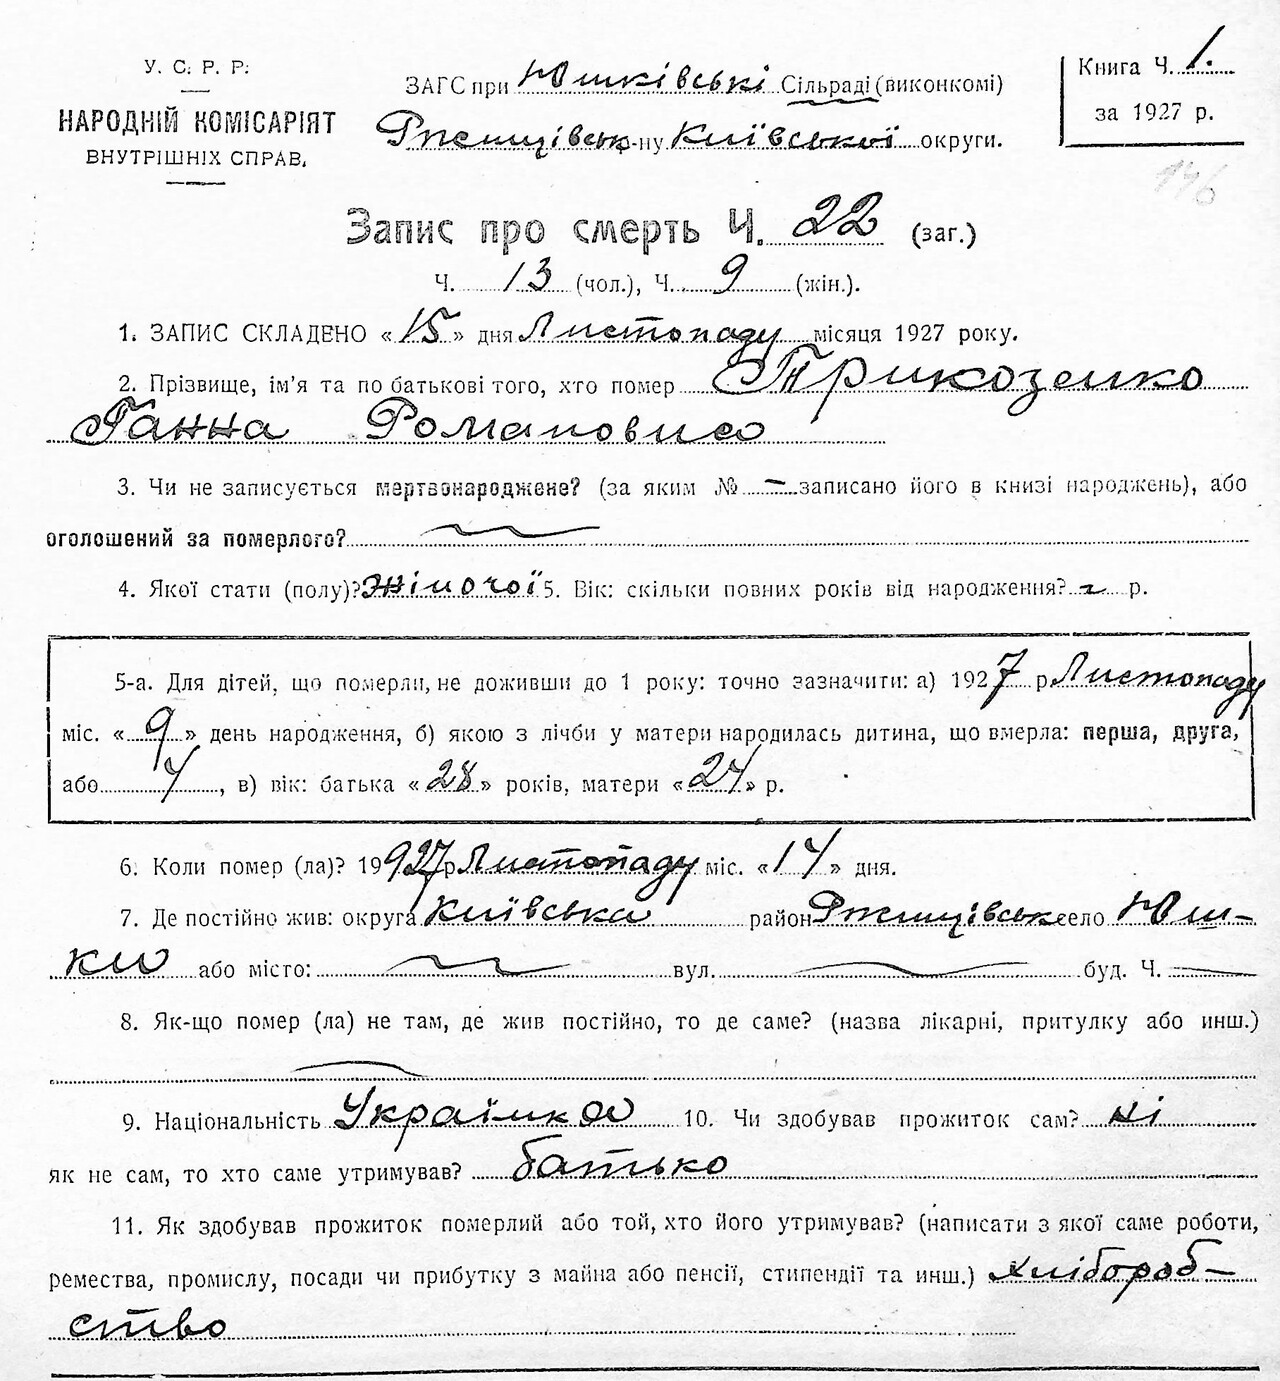 У. С. Р. Р.
НАРОДНІЙ КОМІСАРІЯТ
ВНУТРІШНІХ СПРАВ.
ЗАГС при Юшківські Сільраді (виконкомі)
Ржищівськ р-ну Київської округи.
Книга Ч. 1.
за 1927 р.
146
Запис про смерть Ч. 22 (заг.)
Ч. 13 (чол.), Ч. 9 (жін.).
1. ЗАПИС СКЛАДЕНО «15» дня Листопаду місяця 1927 року.
2. Прізвище, ім'я та по батькові того, хто помер Трикозенко
Ганна Романовна
3. Чи не записується мертвонароджене? (за яким № – записано його в книзі народжень), або
оголошений за померлого?
4. Якої стати (полу)? жіночої 5. Вік: скільки повних років від народження? р.
5-а. Для дітей, що померли, не доживши до 1 року: точно зазначити: а) 1927 р Листопаду
міс. «9» день народження, б) якою з лічби у матери народилась дитина, що вмерла: перша, друга,
або 4, в) вік: батька «28» років, матери «24» р.
6. Коли помер (ла)? 19927 р Листопаду міс. «14» дня.
7. Де постійно жив: округа Київська район Ржищівськ село Юш-
ки або місто: вул. буд. Ч.
8. Як-що помер (ла) не там, де жив постійно, то де саме? (назва лікарні, притулку або инш.)
9. Національність Українка 10. Чи здобував прожиток сам? ні
як не сам, то хто саме утримував? батько
11. Як здобував прожиток померлий або той, хто його утримував? (написати з якої саме роботи,
ремества, промислу, посади чи прибутку з майна або пенсії, стипендії та инш.) хлібороб-
ство